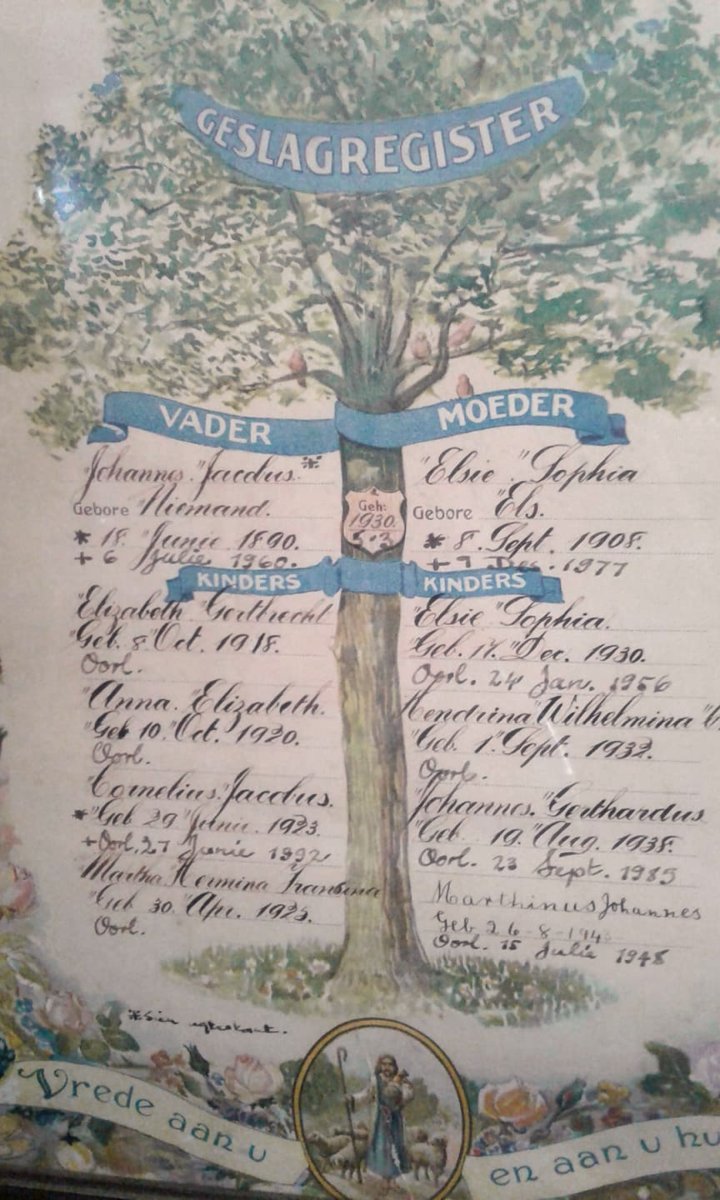 GESLAGREGISTER
VADER
MOEDER
Johannes Jacobus *
Gebore Niemand.
* 18 Junie 1890.
+ 6 Julie 1960.
Geh:
1930.
5.3
Elsie Sophia
Gebore Els.
* 8. Sept. 1908.
+ 7 Des. 1977
KINDERS
KINDERS
Elizabeth
Geb. 8 Oct. 1918.
Oorl.
Anna Elizabeth.
Geb 10. Oct. 1920.
Oorl.
Cornelius Jacobus.
* Geb 29 Junie 1923.
+ Oorl. 27 Junie 1992
Martha Hermina Fransina
Geb 30. Apr. 1925.
Oorl.
Elsie Sophia.
Geb. 17. Dec. 1930.
Oorl. 24 Jan. 1956
Hendrina Wilhelmina
Geb. 1. Sept. 1932.
Oorl.
Johannes. Gerthardus
Geb. 19. Aug. 1938.
Oorl. 23 Sept. 1985
Marthinus Johannes
Geb. 26-8-1943
Oorl. 15 Julie 1948
* Sien agterkant.
Vrede aan u
en aan u hu